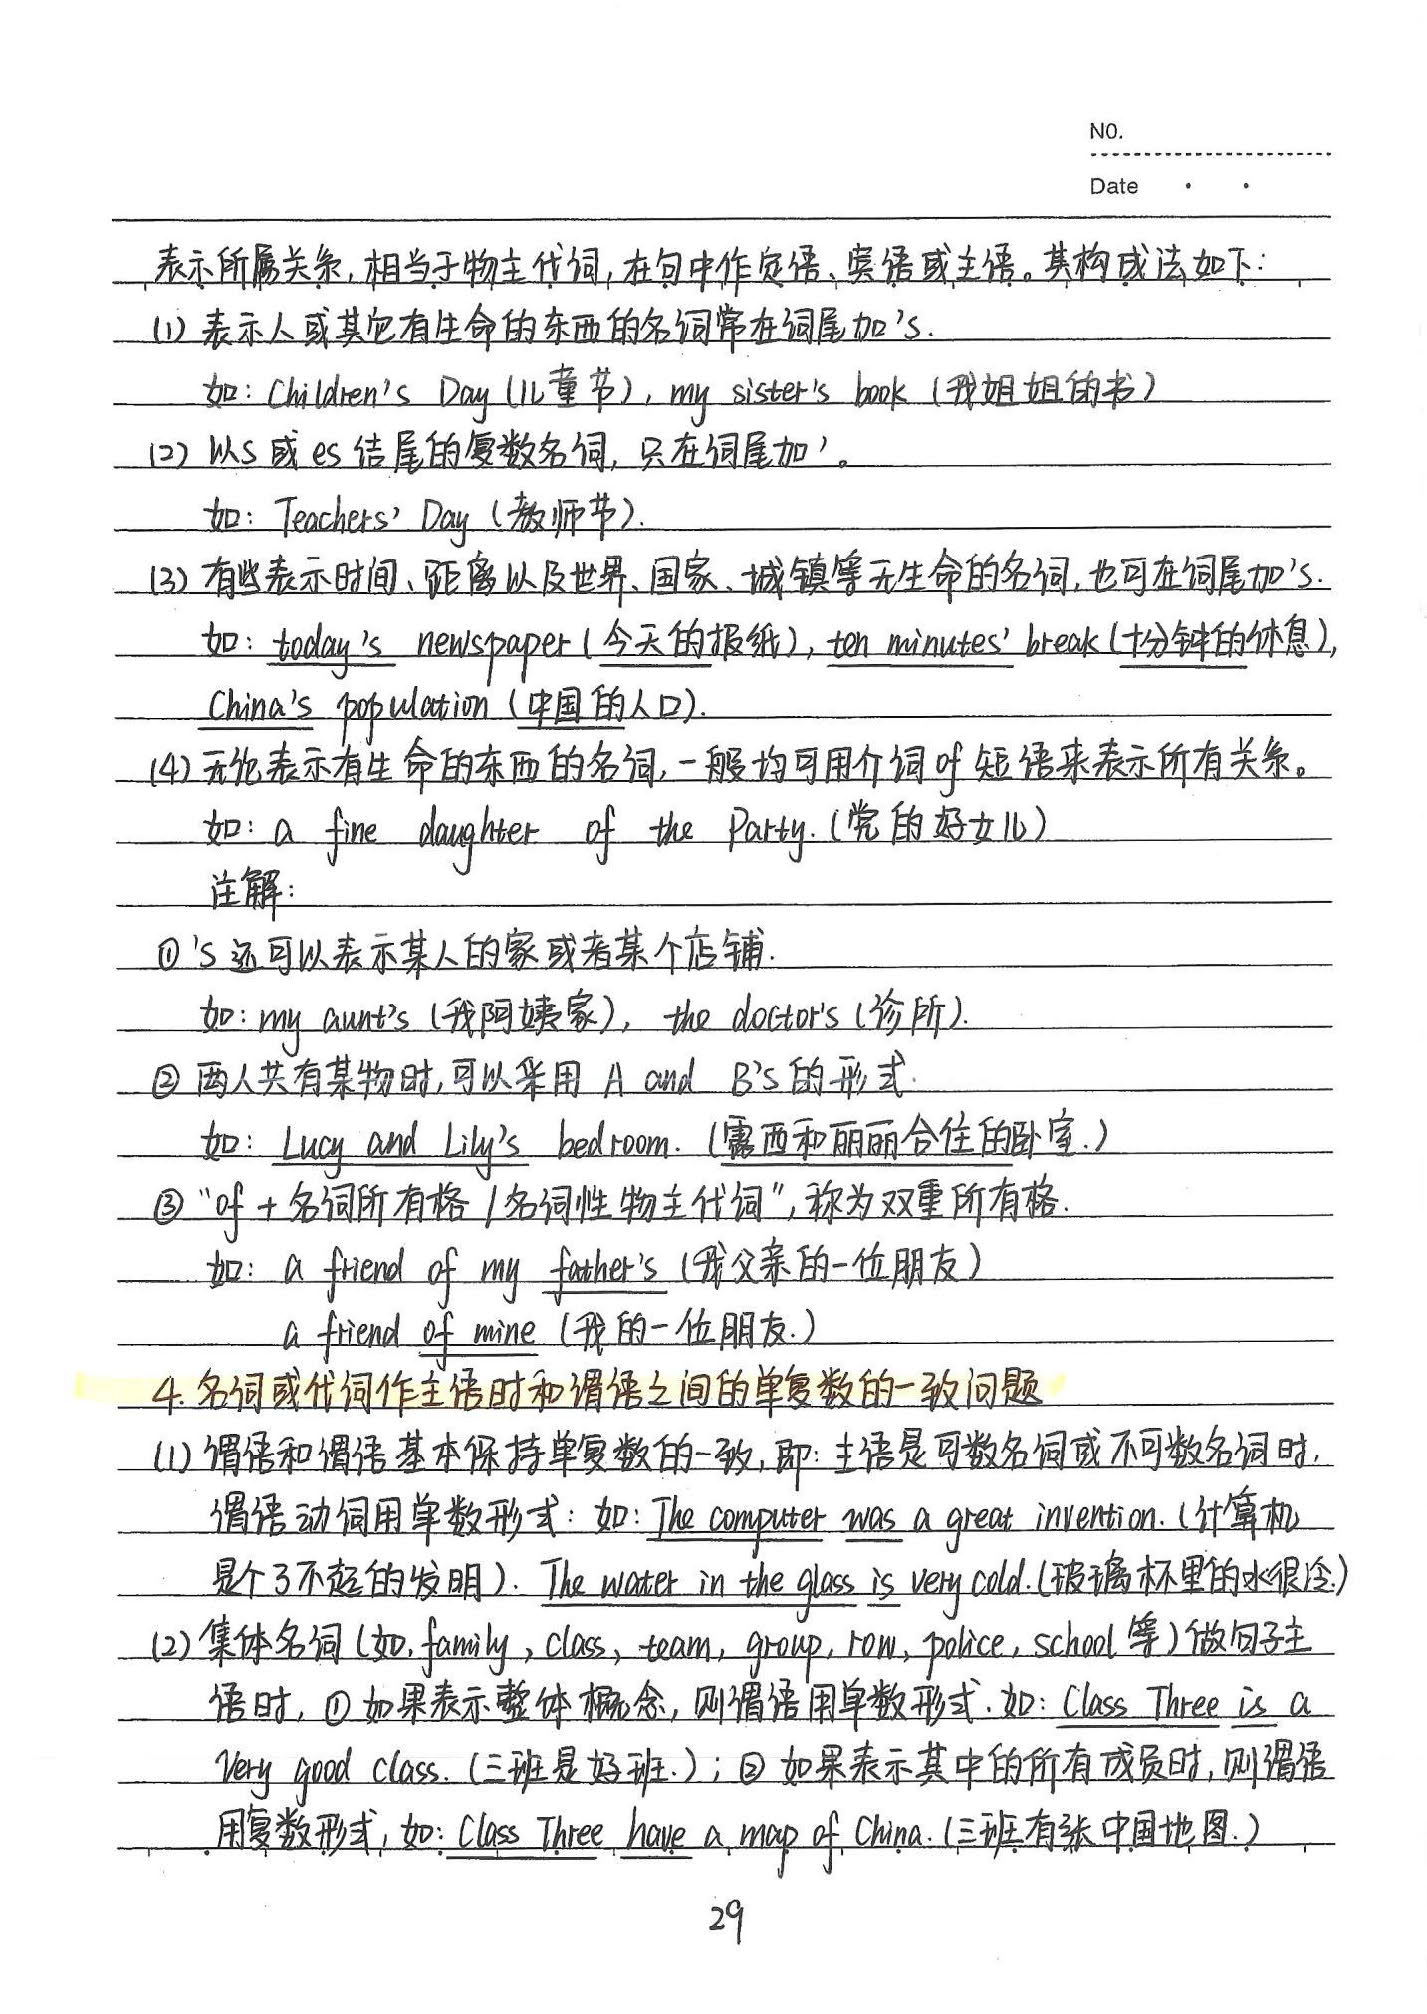 NO.
Date
表示所属关系,相当于物主代词,在句中作定语、宾语或主语。其构成法如下:
(1) 表示人或其它有生命的东西的名词常在词尾加's.
如: Children's Day (儿童节), my sister's book (我姐姐的书)
(2) 以s 或 es 结尾的复数名词, 只在词尾加'。
如: Teachers' Day (教师节).
(3) 有些表示时间、距离以及世界、国家、城镇等无生命的名词, 也可在词尾加's.
如: today's newspaper (今天的报纸), ten minutes' break (十分钟的休息),
China's population (中国的人口).
(4) 无论表示有生命的东西的名词, 一般均可用介词 of 短语来表示所有关系。
如: a fine daughter of the Party. (党的好女儿)
注解:
① 's 还可以表示某人的家或者某个店铺.
如: my aunt's (我阿姨家), the doctor's (诊所).
② 两人共有某物时,可以采用 A and B's 的形式.
如: Lucy and Lily's bedroom. (露西和丽丽合住的卧室.)
③ "of + 名词所有格 / 名词性物主代词", 称为双重所有格.
如: a friend of my father's (我父亲的一位朋友)
a friend of mine (我的一位朋友.)
4. 名词或代词作主语时和谓语之间的单复数的一致问题
(1) 谓语和谓语基本保持单复数的一致, 即: 主语是可数名词或不可数名词时,
谓语动词用单数形式: 如: The computer was a great invention. (计算机
是个了不起的发明). The water in the glass is very cold. (玻璃杯里的水很冷.)
(2) 集体名词 (如. family, class, team, group, row, police, school 等) 做句子主
语时, ① 如果表示整体概念, 则谓语用单数形式. 如: Class Three is a
very good class. (三班是好班.); ② 如果表示其中的所有成员时, 则谓语
用复数形式, 如: Class Three have a map of China. (三班有张中国地图.)
29